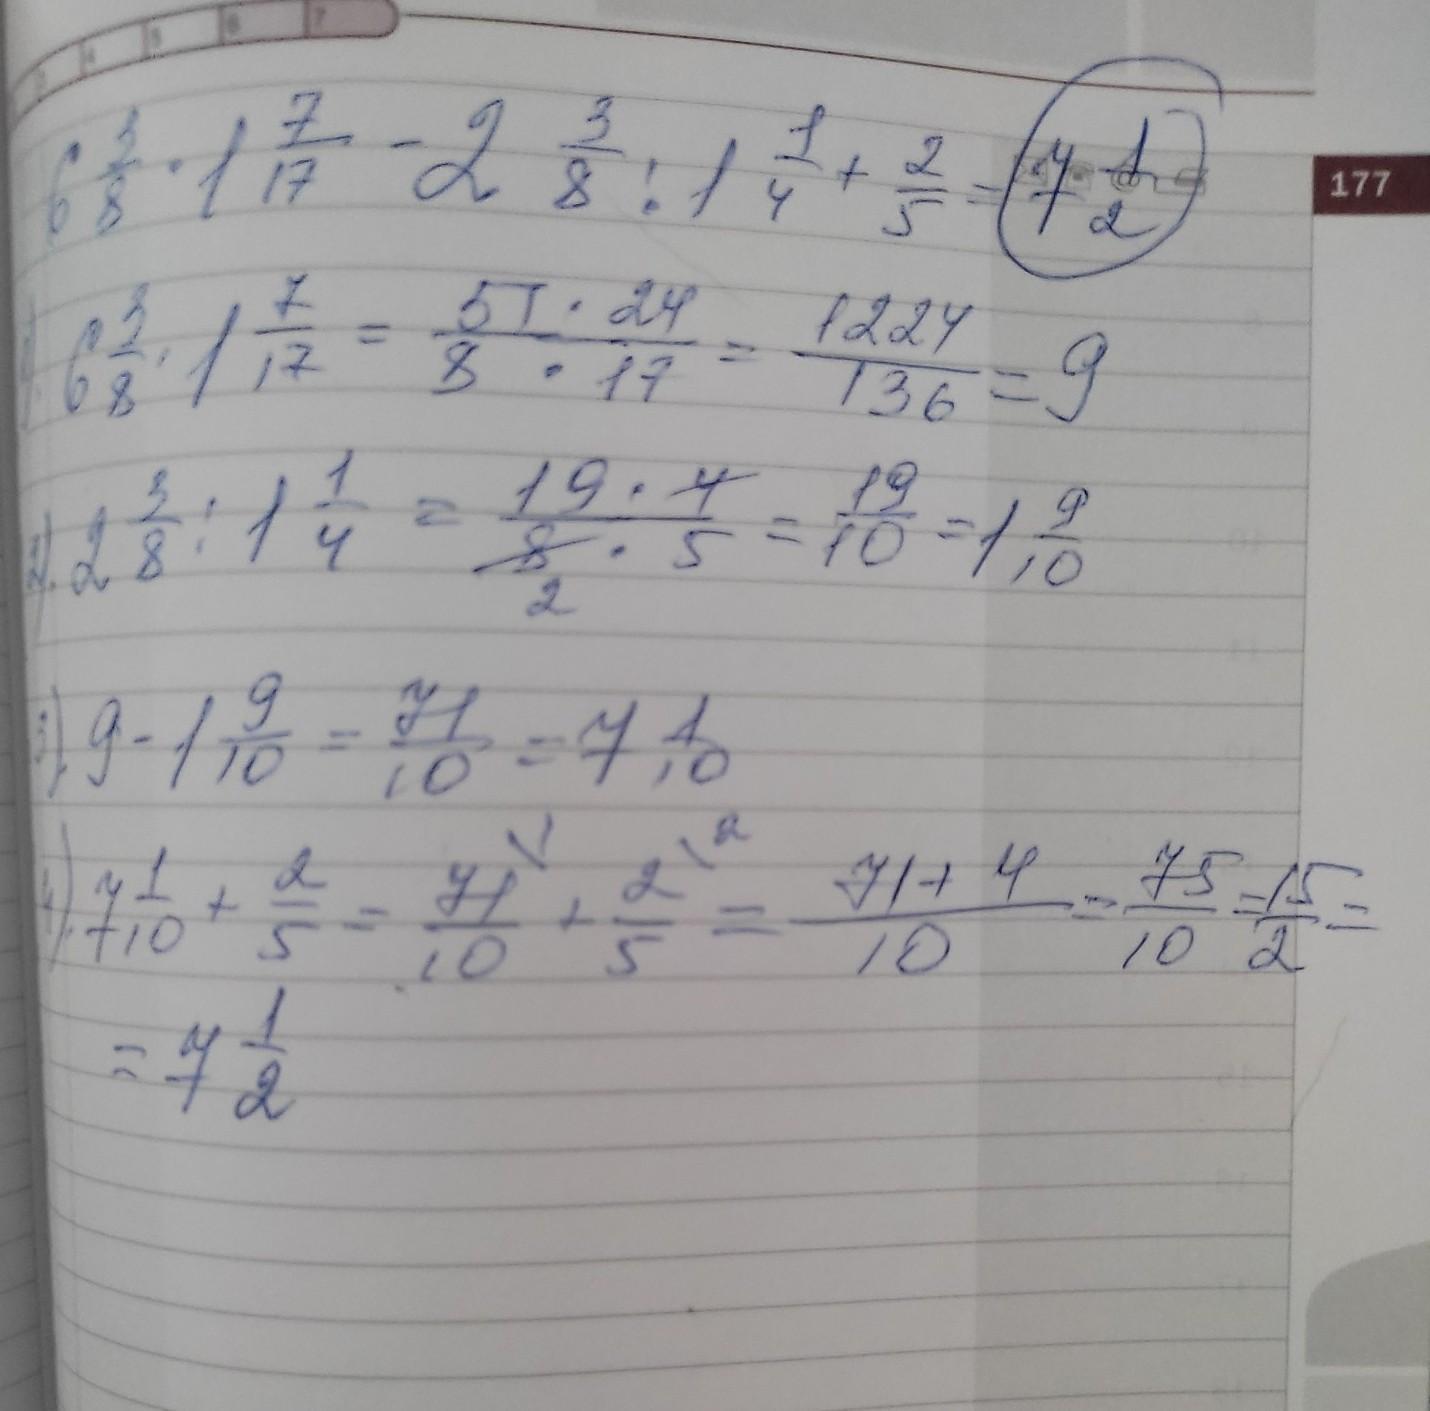 3 4 5 6 7
6 3/8 · 1 7/17 - 2 3/8 : 1 1/4 + 2/5 = 7 1/2
177
1). 6 3/8 · 1 7/17 = 51 · 24 / 8 · 17 = 1224/136 = 9
2). 2 3/8 : 1 1/4 = 19 · 4 / 8 · 5 = 19/10 = 1 9/10
2
3). 9 - 1 9/10 = 71/10 = 7 1/10
4). 7 1/10 + 2/5 = 71/10 \1 + 2/5 \2 = 71 + 4 / 10 = 75/10 = 15/2 =
= 7 1/2